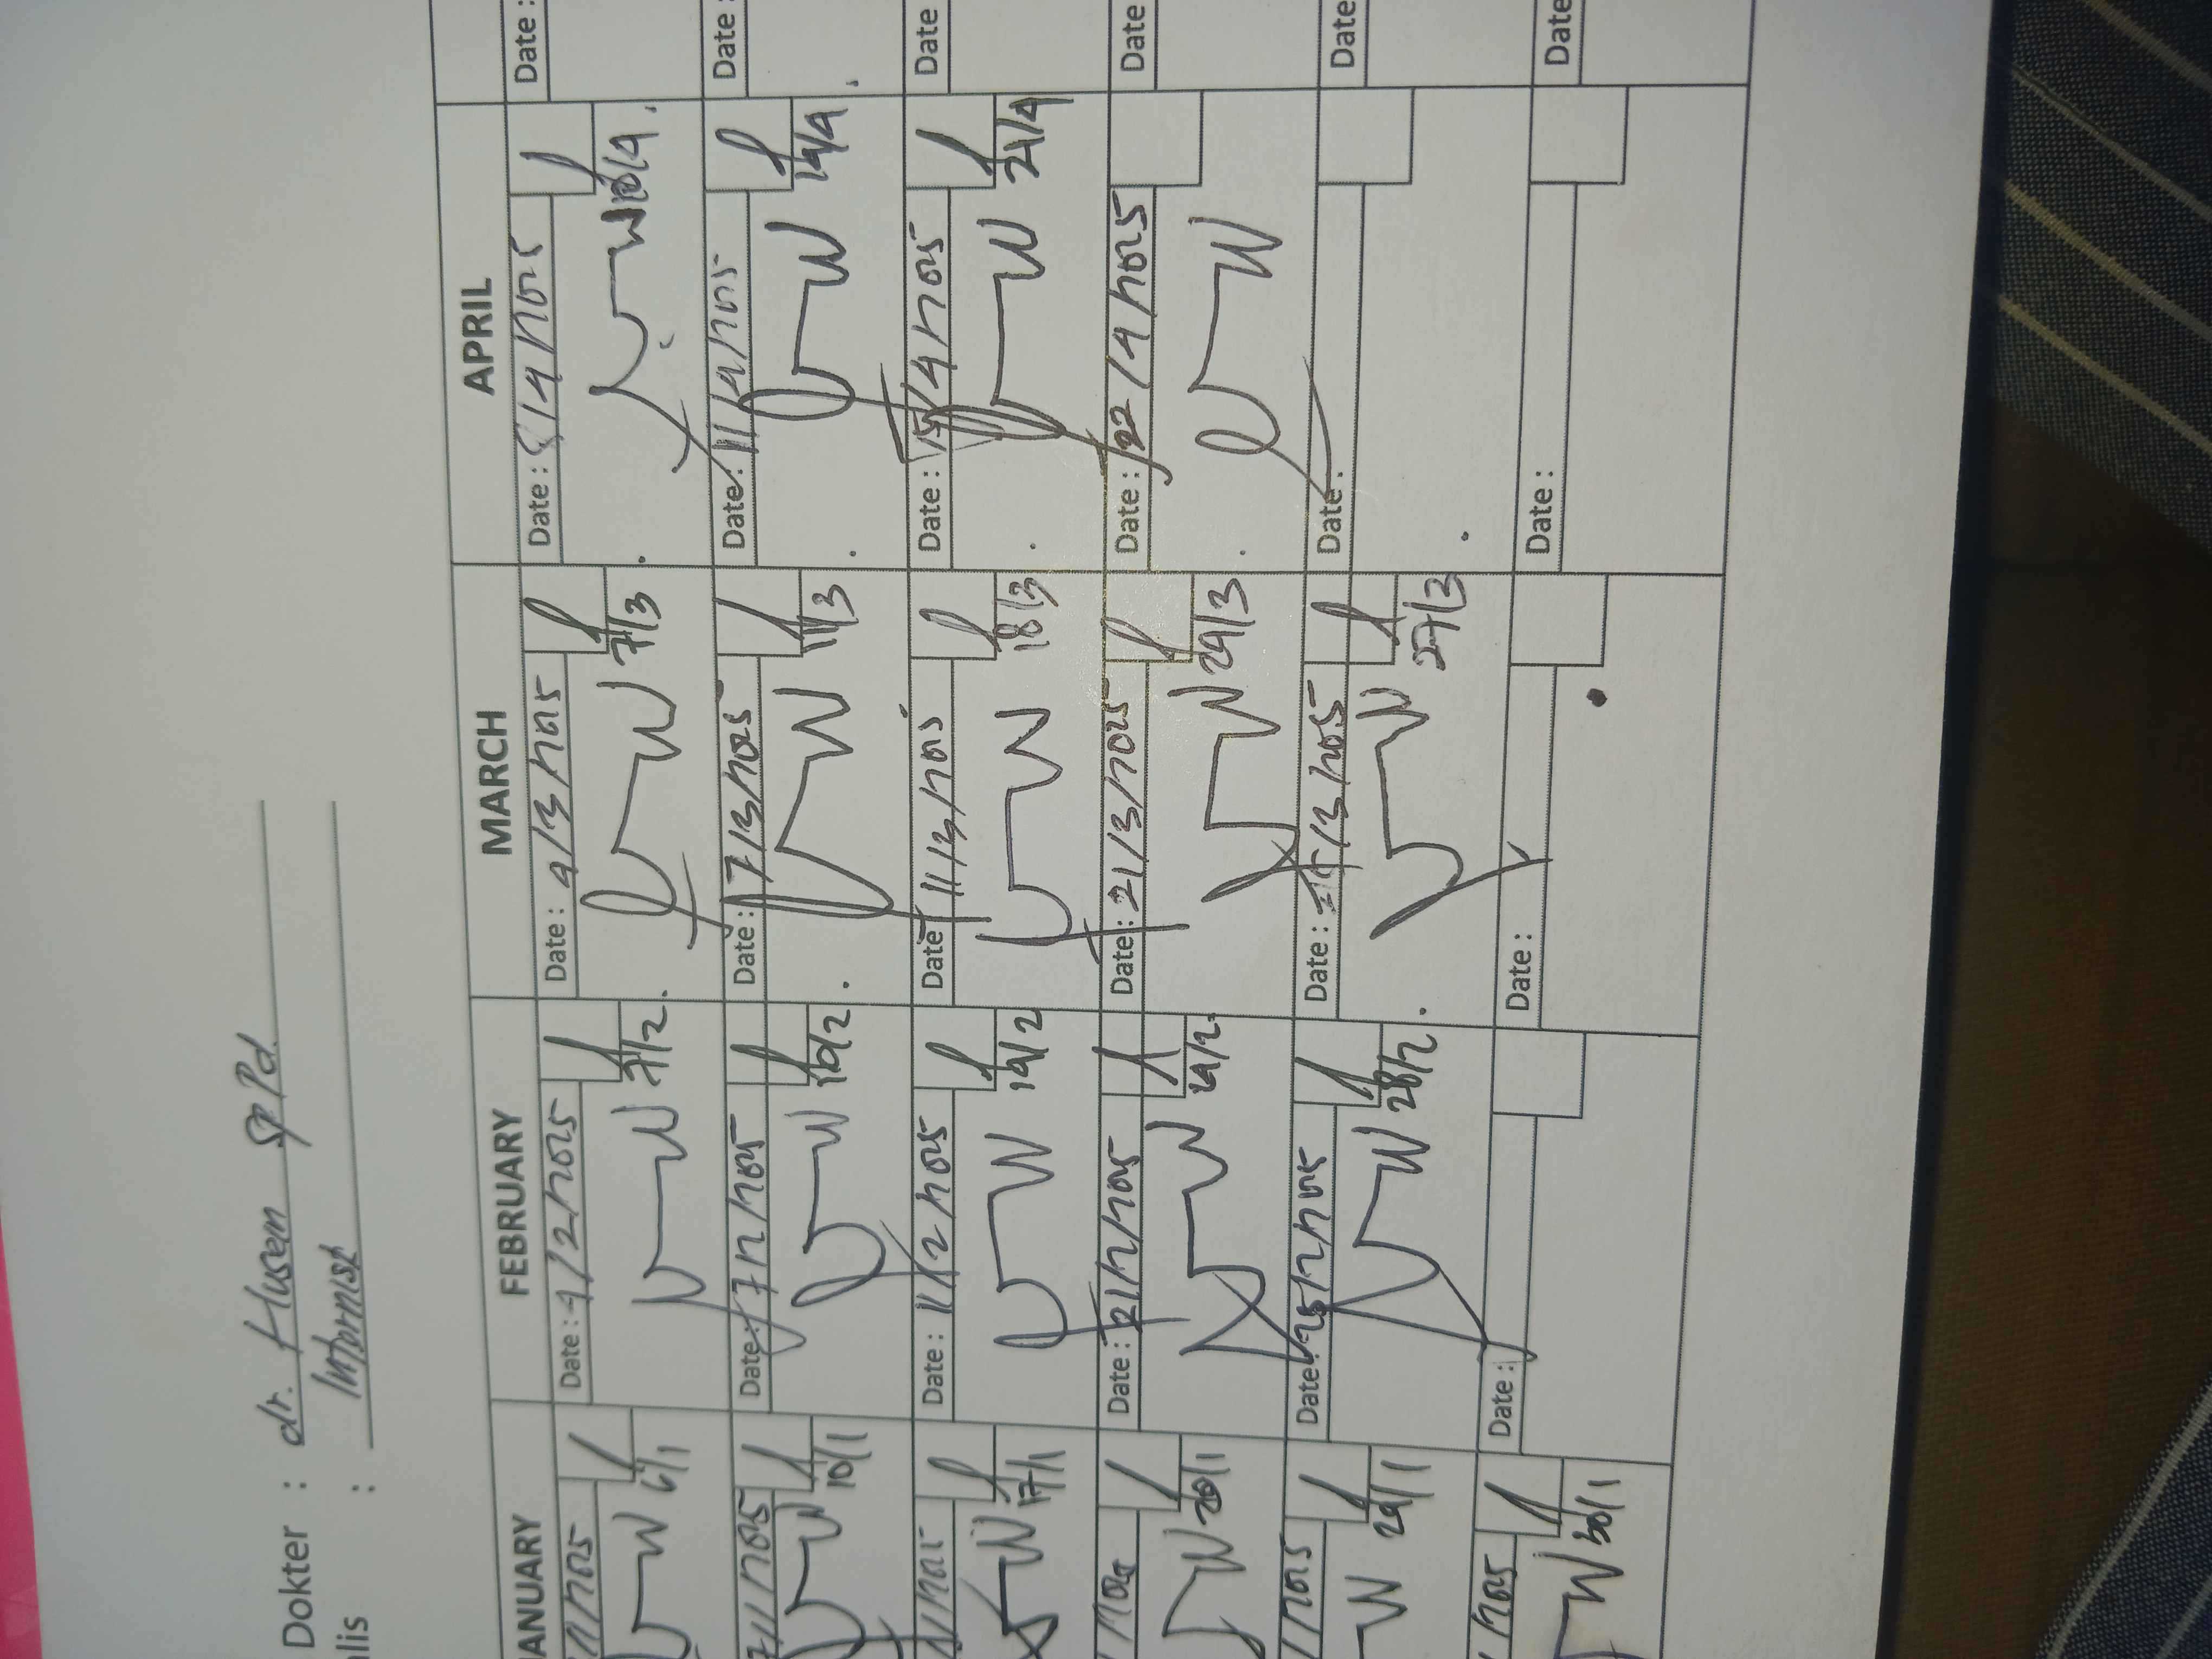 Dokter : dr. Husen SpPd.
alis : Internist
ANUARY FEBRUARY MARCH APRIL
/1/2025 Date : 4/2/2025 Date : 4/3/2025 Date : 8/4/2025 Date :
6/1 7/2 7/3 10/4
7/1/2025 Date : 7/2/2025 Date : 7/3/2025 Date : 11/4/2025 Date :
10/1 10/2 11/3 14/4
/1/2025 Date : 11/2/2025 Date : 11/3/2025 Date : 15/4/2025 Date
17/1 14/2 18/3 21/4
/2025 Date : 21/2/2025 Date : 21/3/2025 Date : 22/4/2025 Date
20/1 24/3
/2025 Date : 25/2/2025 Date : /3/2025 Date : Date
24/1 28/2 27/3
/2025 Date : Date : Date : Date
30/1